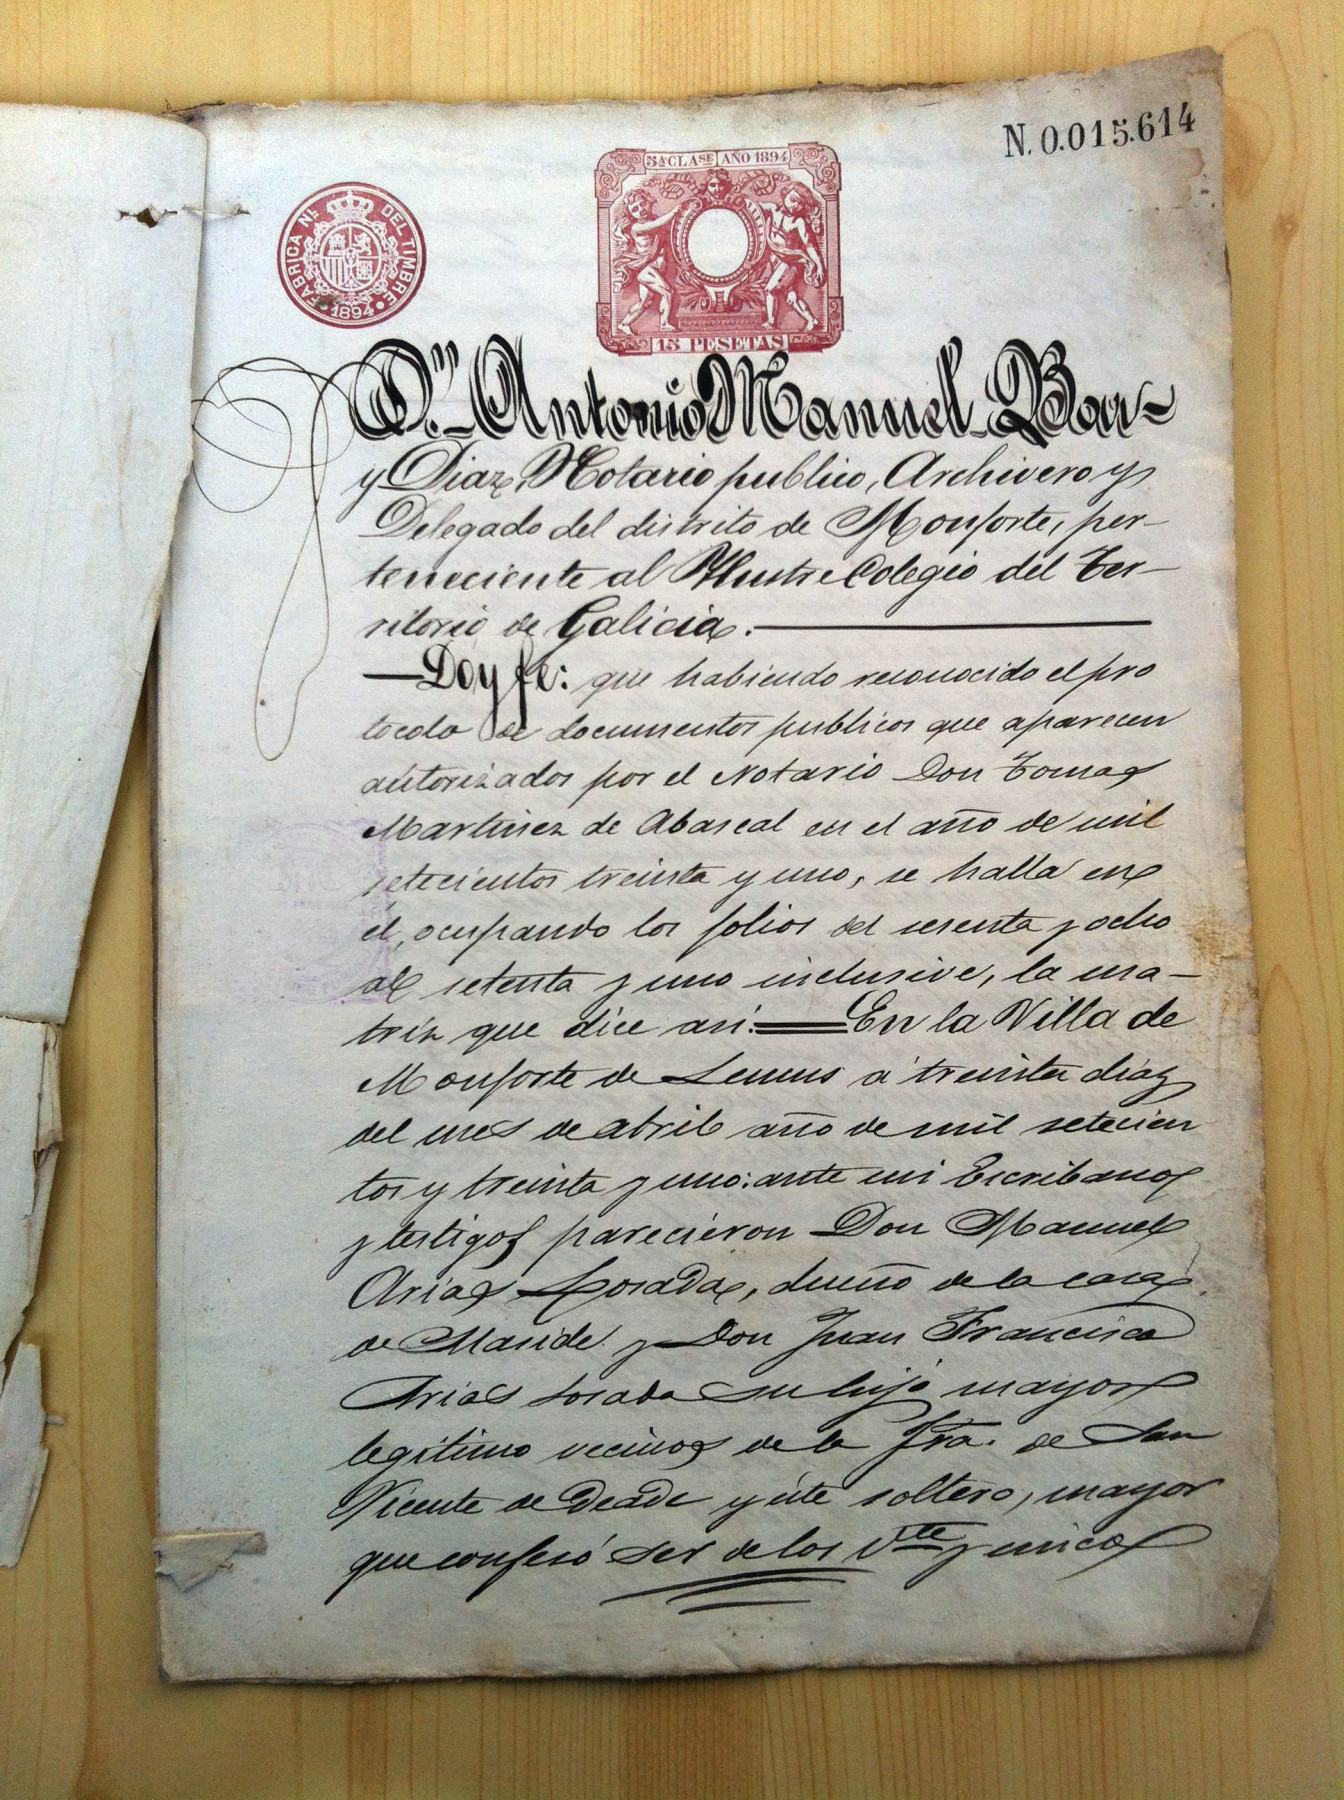 N. 0.015.614
5ª CLASE AÑO 1894
FABRICA Nª DEL TIMBRE
1894
15 PESETAS
D.n Antonio Manuel Boo-
y Diaz, Notario publico, Archivero y
Delegado del distrito de Monforte, per-
teneciente al Ylustre Colegio del Ter-
ritorio de Galicia.
—Doy fe: que habiendo reconocido el pro
tocolo de documentos publicos que aparecen
autorizados por el Notario Don Tomas
Martinez de Abascal en el año de mil
setecientos treinta y uno, se halla en
él, ocupando los folios del sesenta y ocho
al setenta y uno inclusive, la ma-
triz que dice asi.=En la Villa de
Monforte de Lemus á treinta dias
del mes de abril año de mil setecien
tos y treinta y uno: ante mi Escribano
y testigos parecieron Don Manuel
Arias Losada, dueño de la casa
de Maside y Don Juan Francisco
Arias Losada su hijo mayor
legitimo vecinos de la fra. de San
Vicente de Deade y éste soltero, mayor
que confesó ser de los vte y cinco